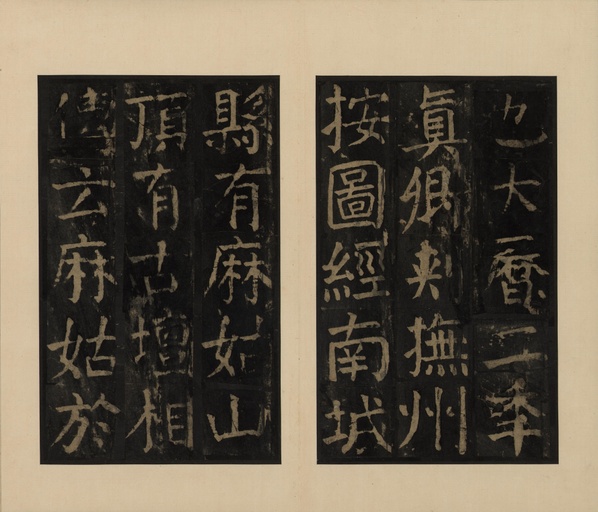 也大曆三秊
眞卿刺撫州
按圖經南城
縣有麻姑山
頂有古壇相
傳云麻姑於